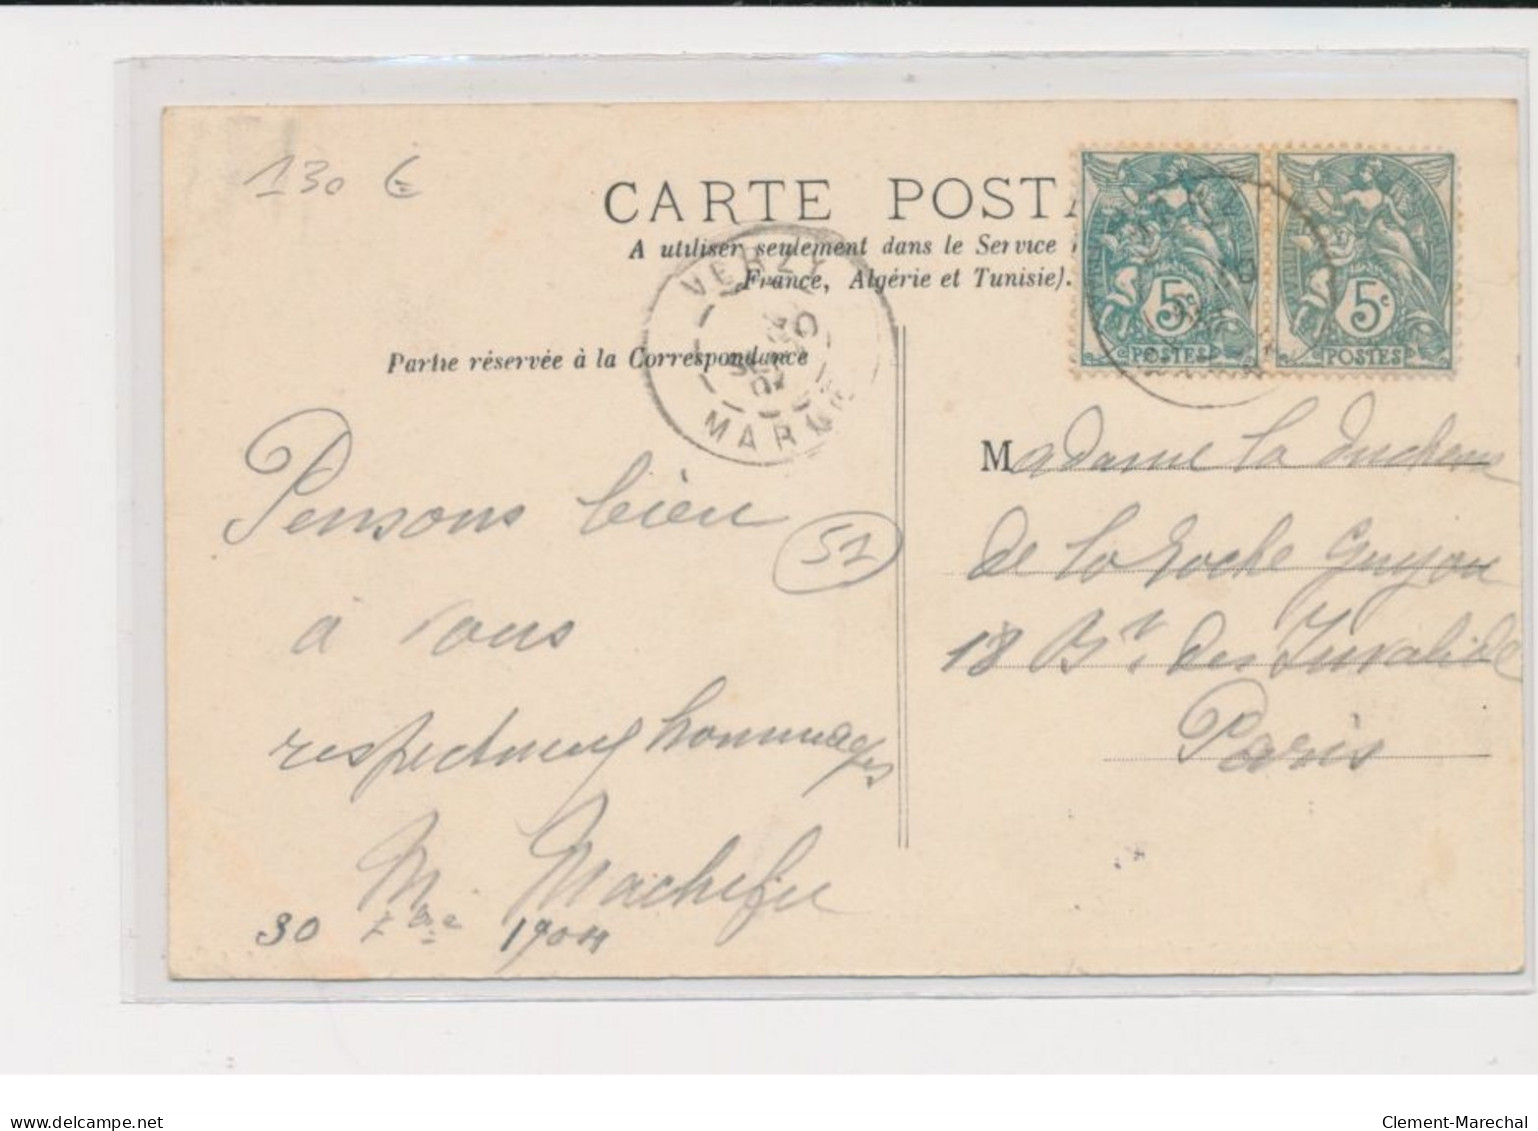 130 €
CARTE POSTA
A utiliser seulement dans le Service
France, Algérie et Tunisie).
VERZY
30
04
MARNE
5c
POSTES
5c
POSTES
Partie réservée à la Correspondance
Pensons bien
51
à vous
respectueux hommages
30 1904
Madame la duchesse
de la Roche Guyon
18 Bd des Invalides
Paris
delcampe.net
Clement-Marechal